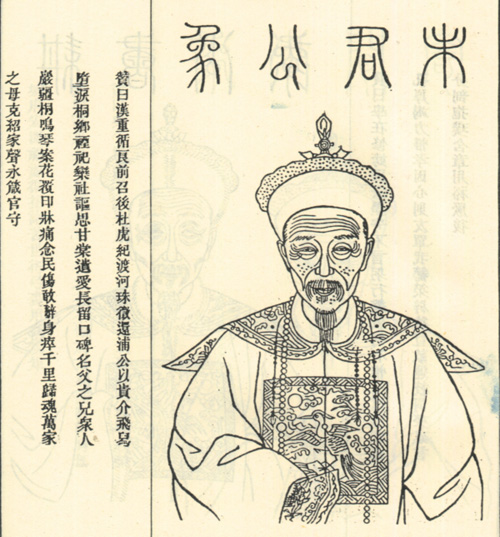 朱君公象
贊曰漢重循良前召後杜虎紀渡河珠徵還浦公以貴介飛舄
墮淚桐鄉禋祀欒社謳思甘棠遺愛長留口碑名父之兄衆人
巖疆桐鳴琴案花覆印牀痛念民傷敢辭身瘁千里歸魂萬家
之母克紹家聲永箴官守